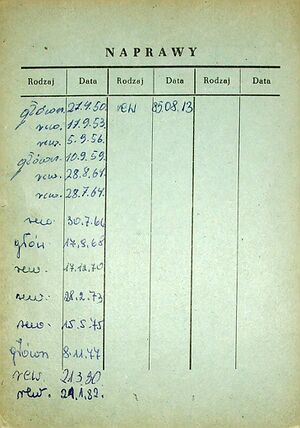 NAPRAWY
Rodzaj Data Rodzaj Data Rodzaj Data
główn 27.4.50. rew 85.08.13
rew. 17.9.53.
rew. 5.9.56.
główn 10.9.59.
rew. 28.8.61.
rew. 28.7.64.
rew. 30.7.66
główn 17.9.68
rew. 17.12.70
rew. 28.2.73
rew. 15.5.75
główn 8.11.77
rew. 21.3.80
rew. 29.1.82.